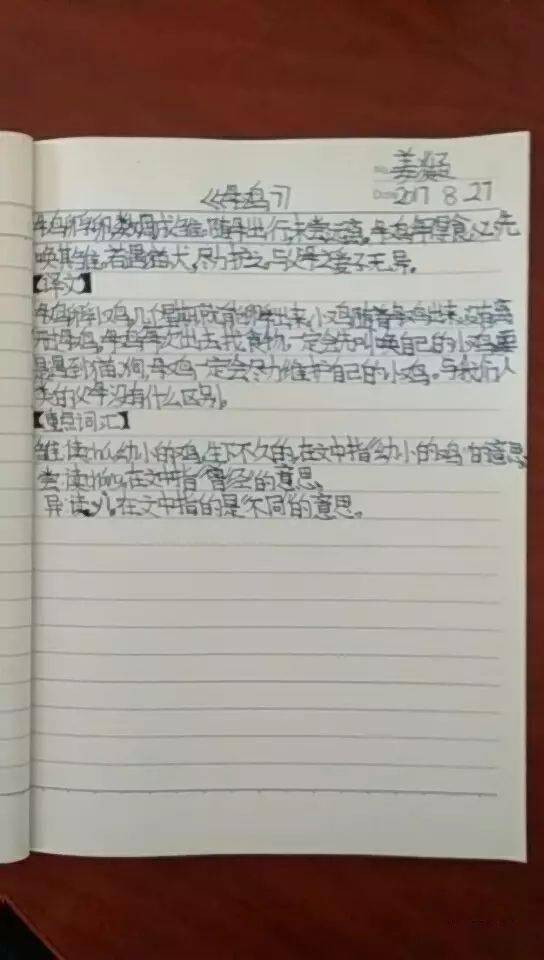 姜灏
2017 8.27
《母鸡》
母鸡孵卵,数周成雏,随母出行,未尝远离。母鸡每得食,必先
唤其雏。若遇猫犬,尽力护之。与父母之爱子无异。
【译文】
母鸡孵小鸡,几个星期就能孵出来,小鸡随着母鸡出来,没有离
开过母鸡,母鸡每次出去找食物,一定会先叫唤自己的小鸡,要
是遇到猫、狗,母鸡一定会尽力维护自己的小鸡。与我们人
类的父母没有什么区别。
【重点词汇】
雏:读chú,幼小的鸡,生下不久的,在文中指“幼小的鸡”的意思。
尝:读cháng,在文中指“曾经”的意思。
异:读yì,在文中指的是“不同”的意思。